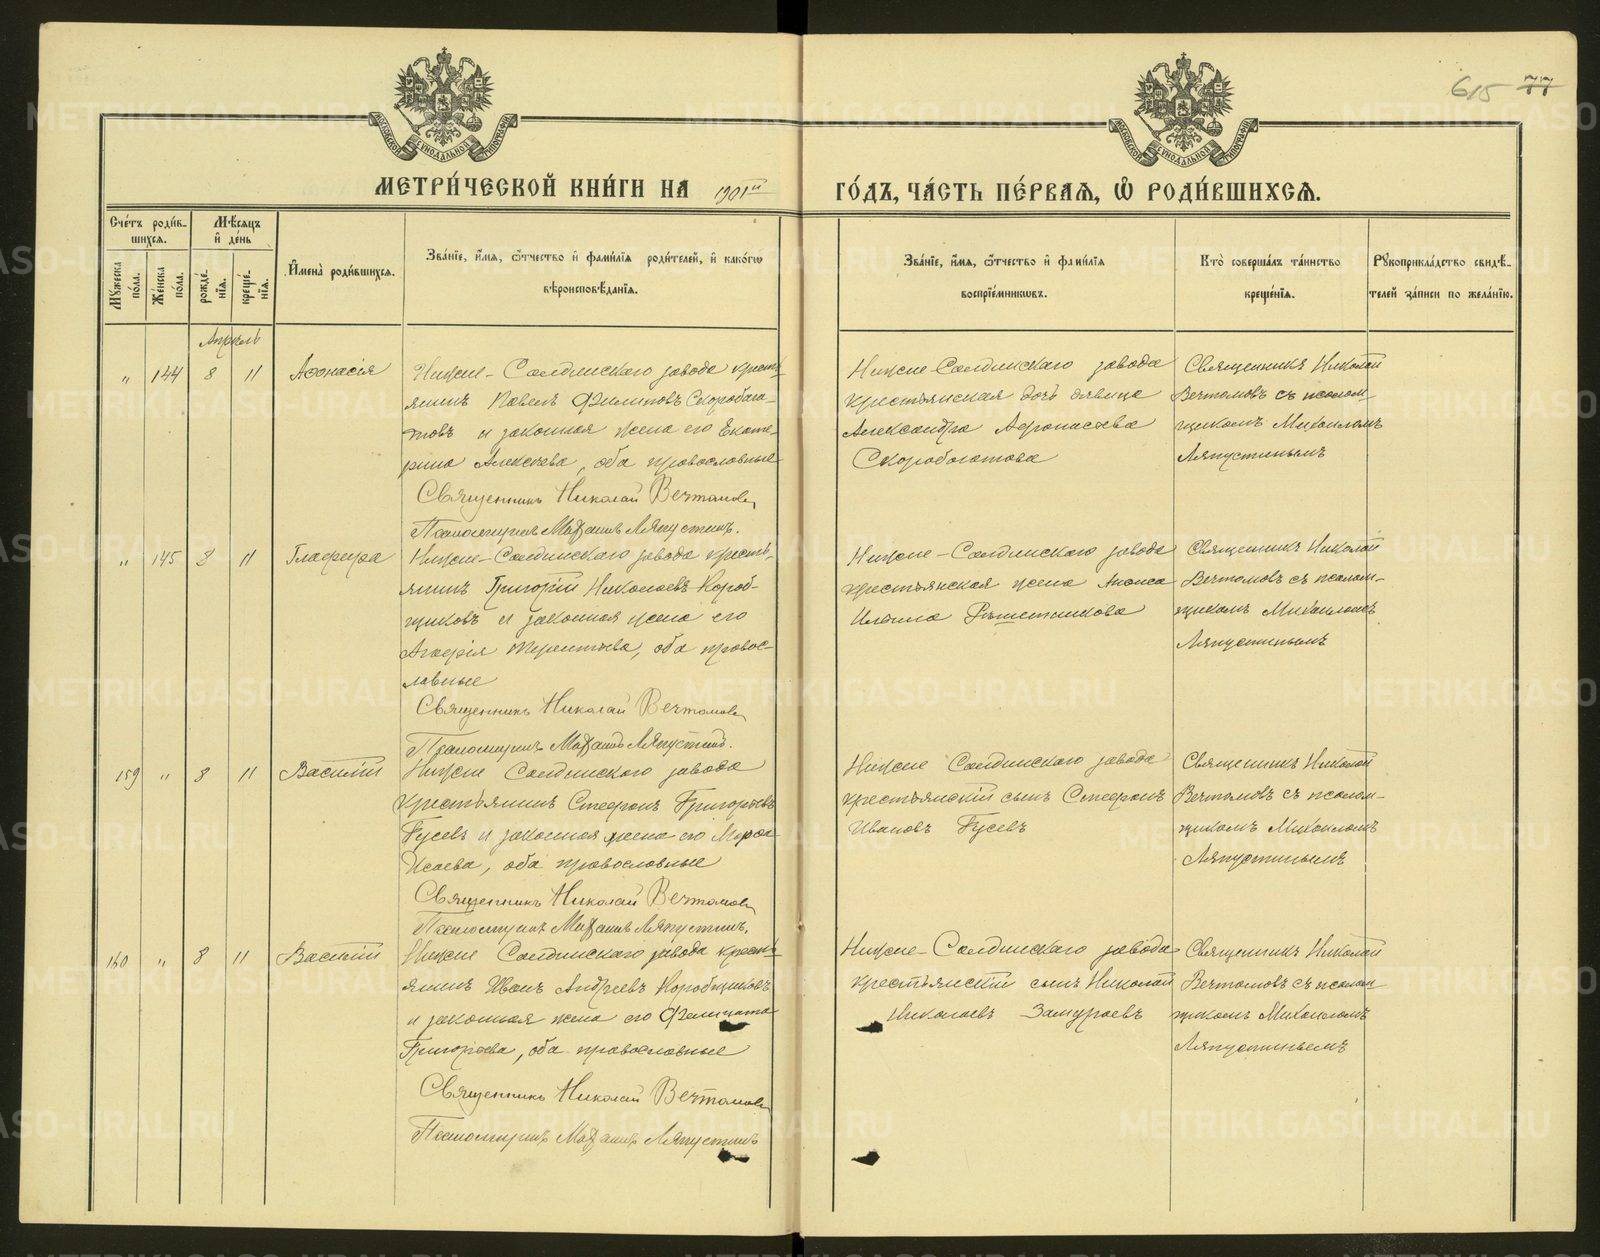 615 77
МЕТРИ́ЧЕСКОЙ КНИ́ГИ НА 1901й ГО́ДЪ, ЧА́СТЬ ПЕ́РВАѦ, Ѽ РОДИ́ВШИХСѦ.
Сче́тъ роди́в-
шихсѧ.
Мѣ́сѧцъ
и҆ де́нь
Мꙋ́жеска по́ла.
Же́нска по́ла.
рожде́-
нїѧ.
креще́-
нїѧ.
И҆мена̀ роди́вшихсѧ.
Зва́нїе, и҆́мѧ, ѻ҆́тчество и҆ фами́лїѧ роди́телей, и҆ како́гѡ
вѣроисповѣ́данїѧ.
Зва́нїе, и҆́мѧ, ѻ҆́тчество и҆ фами́лїѧ
воспрїе́мникѡвъ.
Кто̀ соверша́лъ та́инство
креще́нїѧ.
Рꙋкоприкла́дство свидѣ́-
телей за́писи по жела́нїю.
Апрѣль
" 144 8 11 Афонасія
Нижне-Салдинскаго завода кресть-
янинъ Павелъ Филиповъ Скоробага-
товъ и законная жена его Екате-
рина Алексѣева, оба православные
Священникъ Николай Вечтомовъ
Псаломщикъ Михаилъ Ляпустинъ.
Нижне-Салдинскаго завода
крестьянская дочь дѣвица
Александра Афонасьева
Скоробогатова
Священникъ Николай
Вечтомовъ съ псалом-
щикомъ Михаиломъ
Ляпустинымъ
" 145 8 11 Глафира
Нижне-Салдинскаго завода кресть-
янинъ Григорій Николаевъ Короб-
щиковъ и законная жена его
Агафія Терентьева, оба правос-
лавные
Священникъ Николай Вечтомовъ
Псаломщикъ Михаилъ Ляпустинъ.
Нижне-Салдинскаго завода
крестьянская жена Аниса
Ильина Рѣшетникова
Священникъ Николай
Вечтомовъ съ псалом-
щикомъ Михаиломъ
Ляпустинымъ
159 " 8 11 Василій
Нижне Салдинскаго завода
крестьянинъ Стефанъ Григорьевъ
Гусевъ и законная жена его Марѳа
Исаева, оба православные
Священникъ Николай Вечтомовъ
Псаломщикъ Михаилъ Ляпустинъ.
Нижне Салдинскаго завода
крестьянскій сынъ Стефанъ
Ивановъ Гусевъ
Священникъ Николай
Вечтомовъ съ псалом-
щикомъ Михаиломъ
Ляпустинымъ
160 " 8 11 Василій
Нижне Салдинскаго завода кресть-
янинъ Иванъ Андреевъ Коробщиковъ
и законная жена его Фелицата
Григорьева, оба православные
Священникъ Николай Вечтомовъ
Псаломщикъ Михаилъ Ляпустинъ
Нижне-Салдинскаго завода
крестьянскій сынъ Николай
Николаевъ Замураевъ
Священникъ Николай
Вечтомовъ съ псалом-
щикомъ Михаиломъ
Ляпустинымъ
METRIKI.GASO-URAL.RU